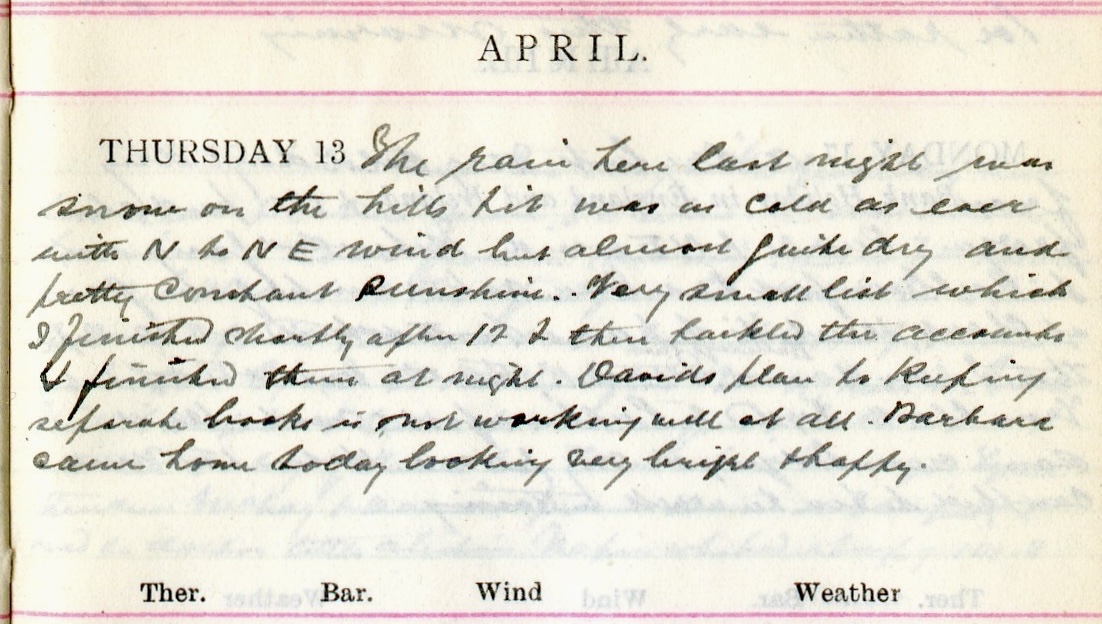 APRIL.
THURSDAY 13 The rain here last night was
snow on the hills & it was as cold as ever
with N to N E wind but almost quite dry and
pretty constant sunshine. Very small list which
I finished shortly after 12 & then tackled the accounts
& finished them at night. Davids plan to keeping
separate books is not working well at all. Barbara
came home today looking very bright & happy.
Ther. Bar. Wind Weather